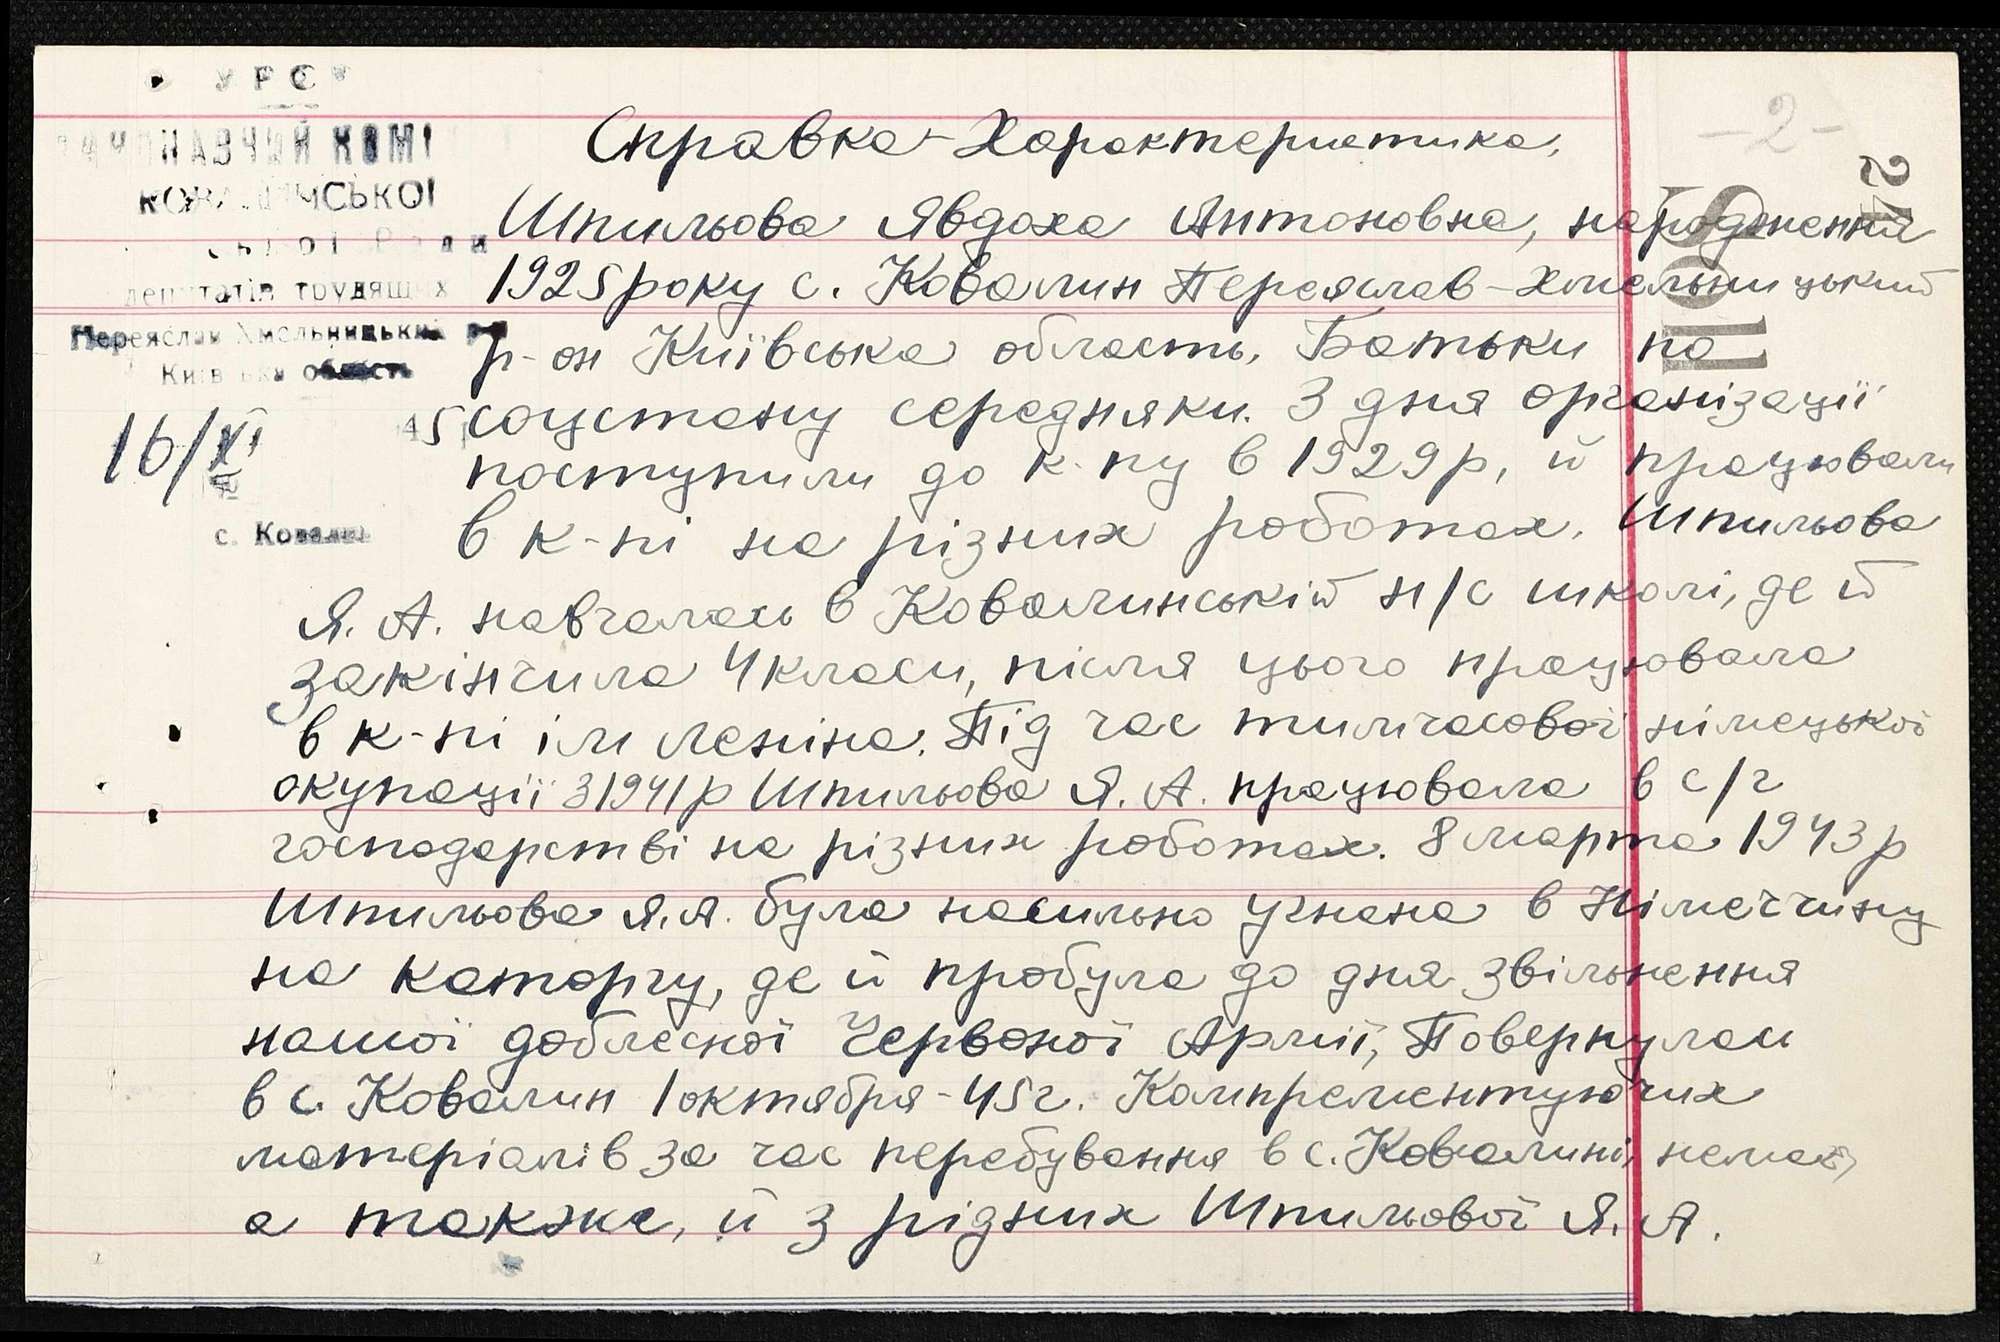 УРСР
ВИКОНАВЧИЙ КОМІ
КОВАЛИНСЬКОЇ
сільської Ради
депутатів трудящих
Переяслав Хмельницький р-н
Київська область
16/XI 45
с. Ковалин
-2-
24
Soll
Справка-Характеристика,
Шпильова Явдоха Антоновна, народження
1925 року с. Ковалин Переяслав-Хмельницький
р-он Київська область. Батьки по
соцстану середняки. З дня організації
поступили до к-пу в 1929р, й працювали
в к-пі на різних роботах. Шпильова
Я. А. навчалась в Ковалинській н/с школі, де й
закінчила 4 класи, після цього працювала
в к-пі ім Леніна. Під час тимчасової німецької
окупації з 1941р Шпильова Я. А. працювала в с/г
господарстві на різних роботах. 8 марта 1943р
Шпильова Я.А. була насильно угнана в Німеччину
на каторгу, де й пробула до дня звільнення
нашої доблесної Червоної Армії, Повернулась
в с. Ковалин 1 октября-45г. Компрементуючих
матеріалів за час перебування в с. Ковалині, немає,
а также, й з рідних Шпильової Я. А.